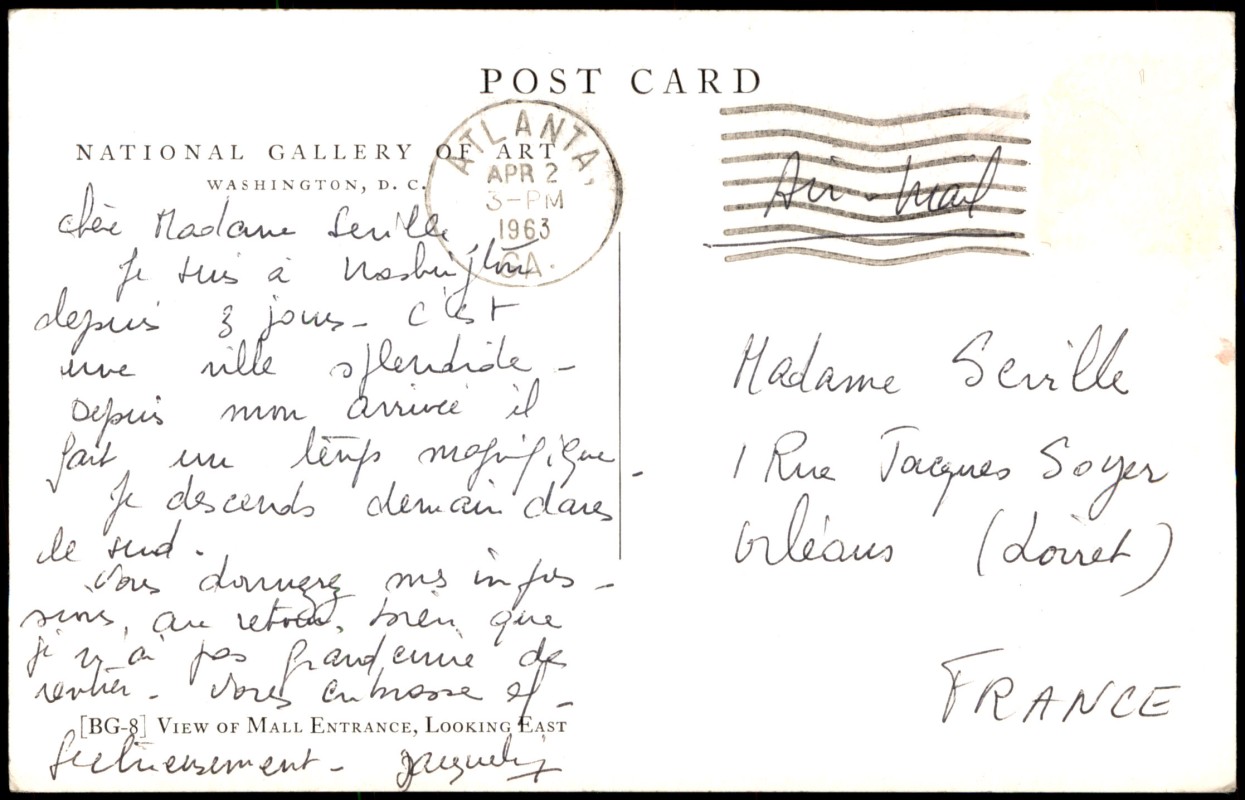 POST CARD
NATIONAL GALLERY OF ART
WASHINGTON, D. C.
ATLANTA,
APR 2
3-PM
1963
GA.
Air-Mail
chère Madame Seville
Je suis à Washington
depuis 3 jours - c'est
une ville splendide -
Depuis mon arrivée il
fait un temps magnifique -
Je descends demain dans
le sud.
Vous donnerez mes impres-
sions, au retour, bien que
je n'ai pas grand envie de
rentrer - Vous embrasse af-
[BG-8] VIEW OF MALL ENTRANCE, LOOKING EAST
fectueusement -
Madame Seville
1 Rue Jacques Soyer
Orléans (Loiret)
FRANCE